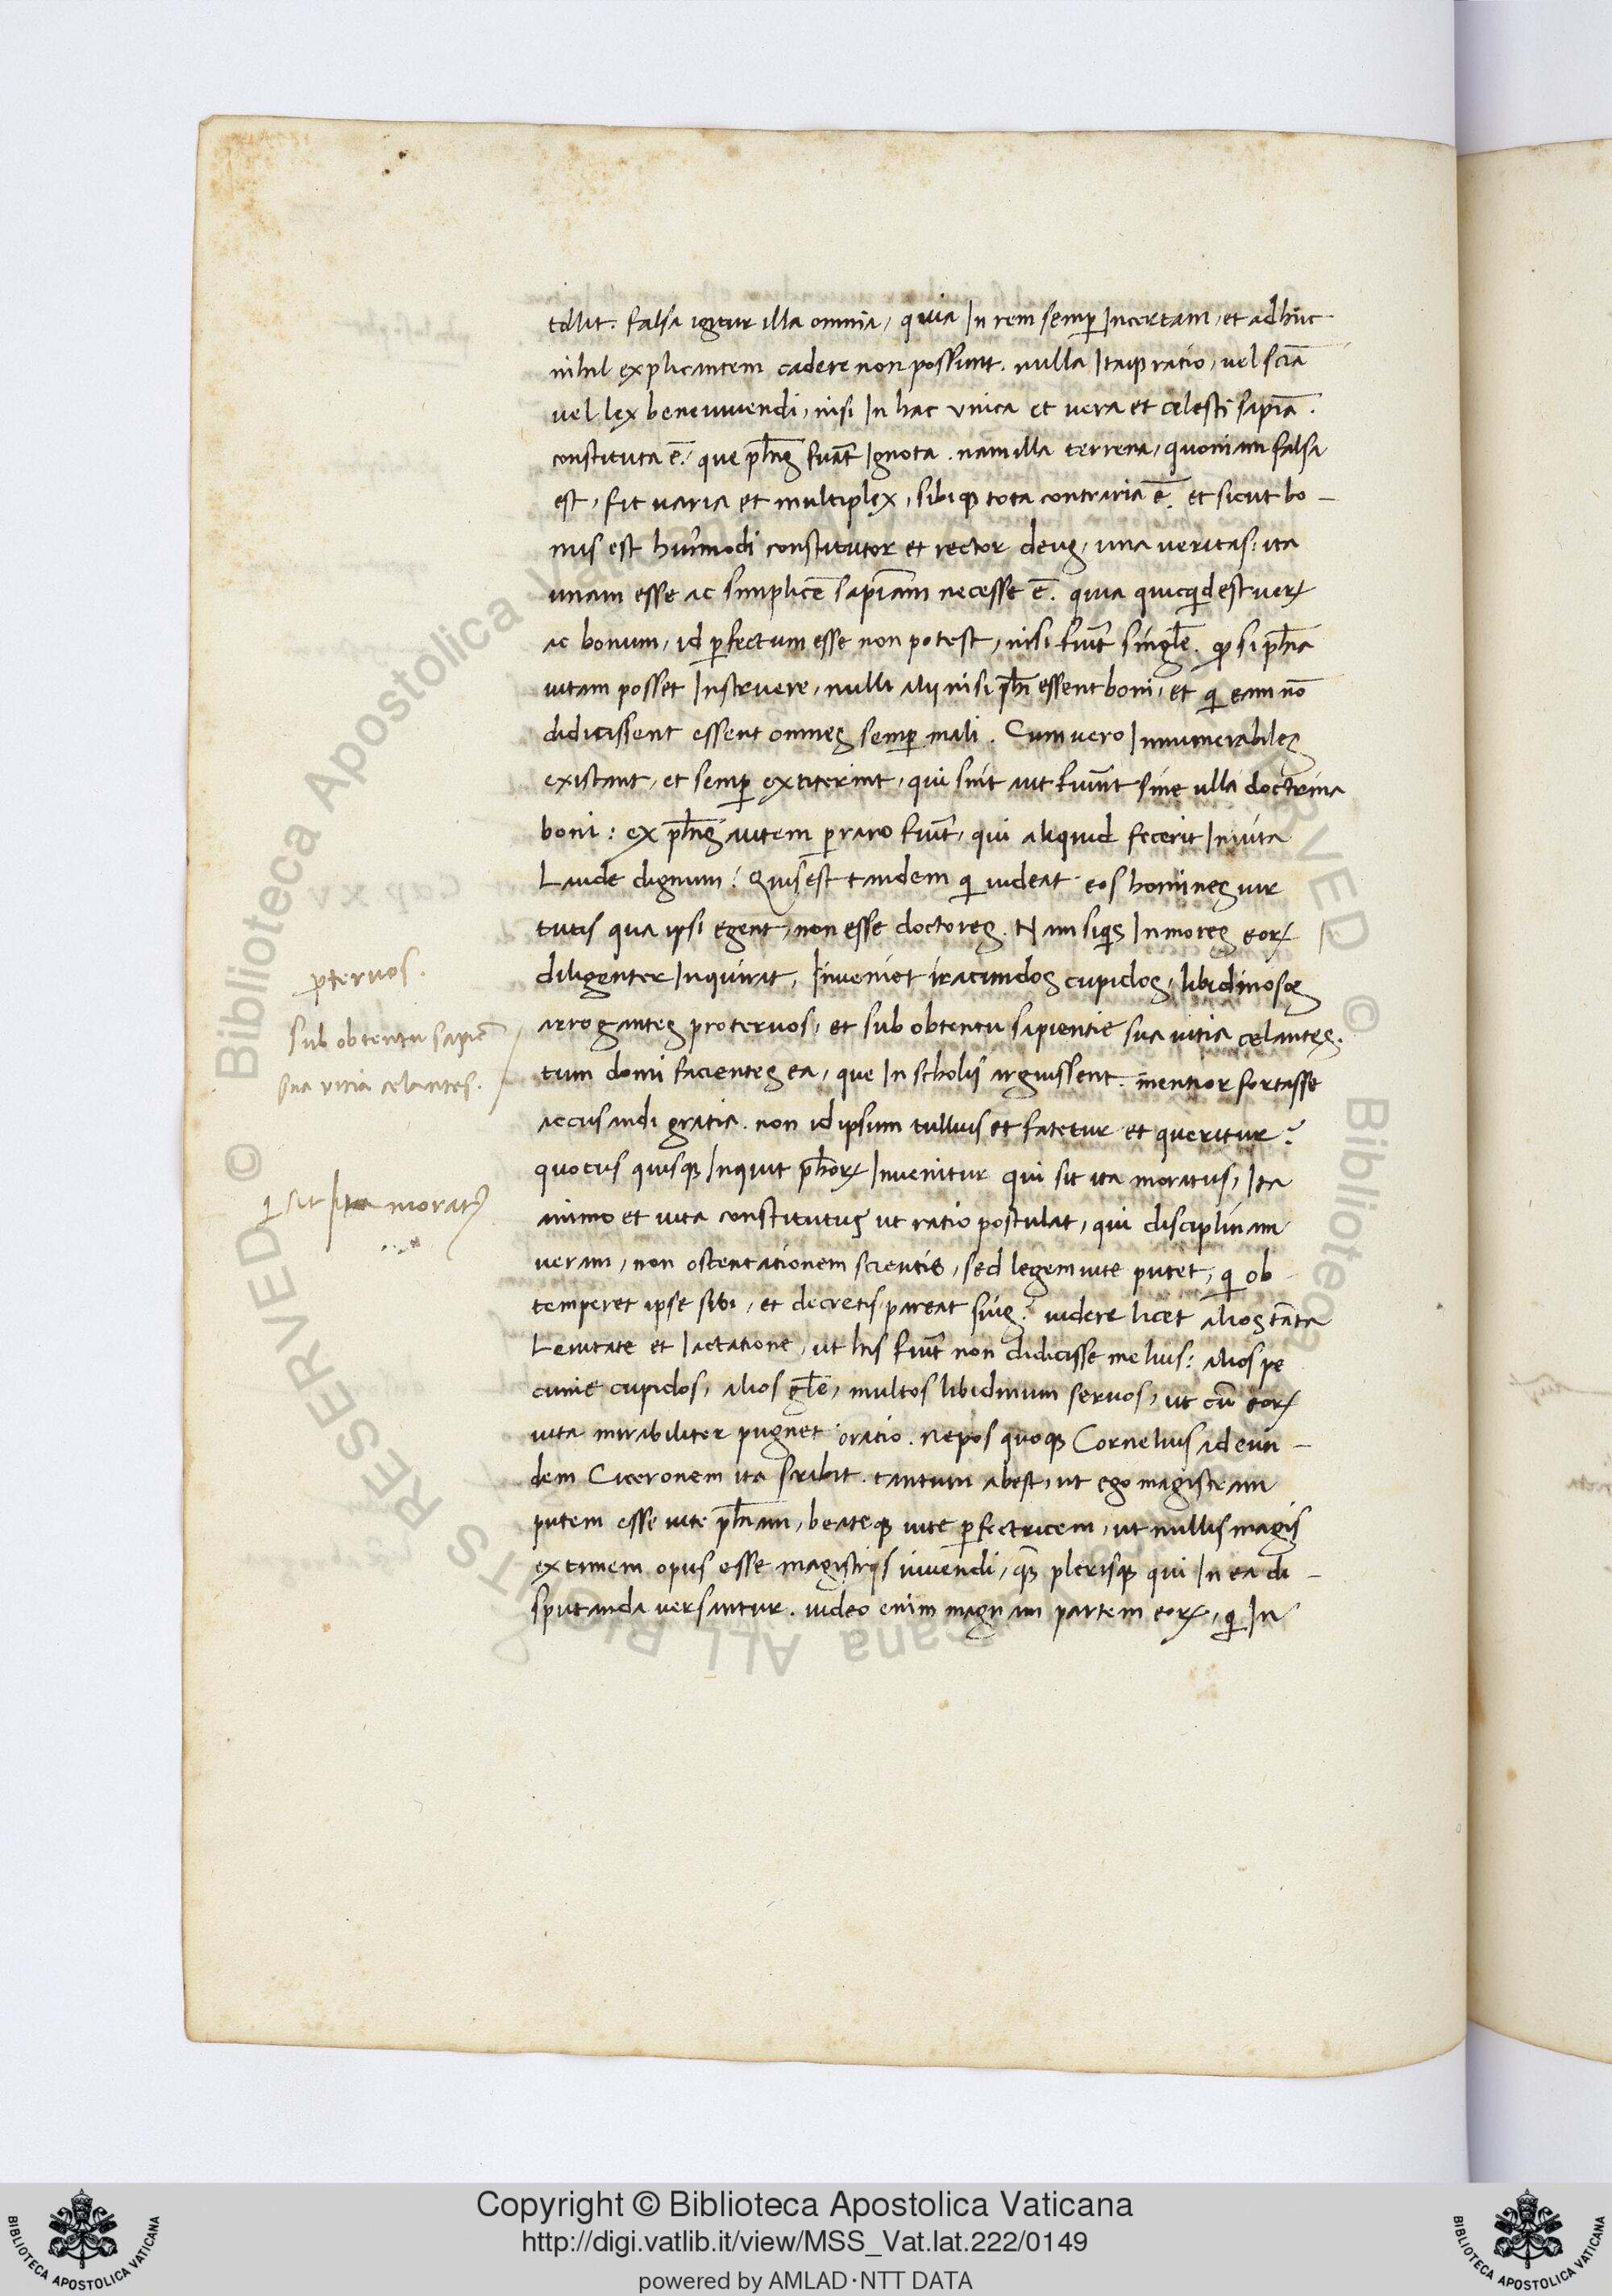 tollit. falsa igitur illa omnia, quia In rem semp̄ Incertam, et adhuc
nihil explicantem cadere non possunt. nulla Itaqȝ ratio, vel sciā
vel lex bene uiuendi, nisi In hac vnica et uera et celesti sapīa.
constituta ē. que ph̄ng fuāt Ignota. nam illa terrena, quoniam falsa
est, fit uaria et multiplex, sibiqȝ tota contraria ē. et sicut bo-
nus est hui᾽modi constitutor et rector deus, una veritas: ita
unam esse ac simplicē sapīam necesse ē. quia quicqͥd est uerꝝ
ac bonum, id ꝑfectum esse non potest, nisi fuit̄ singl̄e. ꝙ si ph̄ia
uitam posset Instruere, nulli alij nisi ph̄i essent boni, et qͥ eam nō
didicissent essent omnes semp̄ mali. Cum uero Innumerabiles
existant, et semp̄ extiterint, qui sint aut fuerint sine ulla doctrina
boni: ex ph̄ng autem ꝑraro fuit̄, qui aliquid fecerit In uita
Laude dignum: Quis est tandem qͥ uideat eos homines uir
tutis qua ipsi egent, non esse doctores. Nam siqͥs In mores eorꝝ
diligenter Inquirat, Inueniet iracundos cupidos, libidinosos
arrogantes proteruos, et sub obtentu sapientie sua uitia celantes.
tum domi facientes ea, que In scholis arguissent. mentior fortasse
accusandi gratia. non id ipsum tullius et fatetur et queritur?
quotus quisqȝ Inquit ph̄orꝝ Inuenitur qui sit ita moratus, Ita
animo et uita constitutus ut ratio postulat, qui disciplinam
ueram, non ostentationem scientie, sed legem uite putet, qͥ ob
temperet ipse sibi, et decretis pareat suis? uidere licet alios tāta
Leuitate et Iactatione, ut his fuit̄ non didicisse melius: alios pe
cunie cupidos, alios gl̄e, multos libidinum seruos, ut cū eorꝝ
uita mirabiliter pugnet oratio. Nepos quoqȝ Cornelius ad eun-
dem Ciceronem ita scribit. tantum abest, ut ego magistram
putem esse uite ph̄iam, beateqȝ uite ꝑfectricem, ut nullis magis
extimem opus esse magistris uiuendi, qȝ plerisqȝ qui In ea di-
sputanda uersantur. uideo enim magnam partem eorꝝ, qͥ In
ꝓteruos.
sub obtentu sapiē
sua vitia celantes.
qͥ sit ita moratꝰ
Copyright © Biblioteca Apostolica Vaticana
http://digi.vatlib.it/view/MSS_Vat.lat.222/0149
powered by AMLAD·NTT DATA
BIBLIOTECA APOSTOLICA VATICANA
BIBLIOTECA APOSTOLICA VATICANA